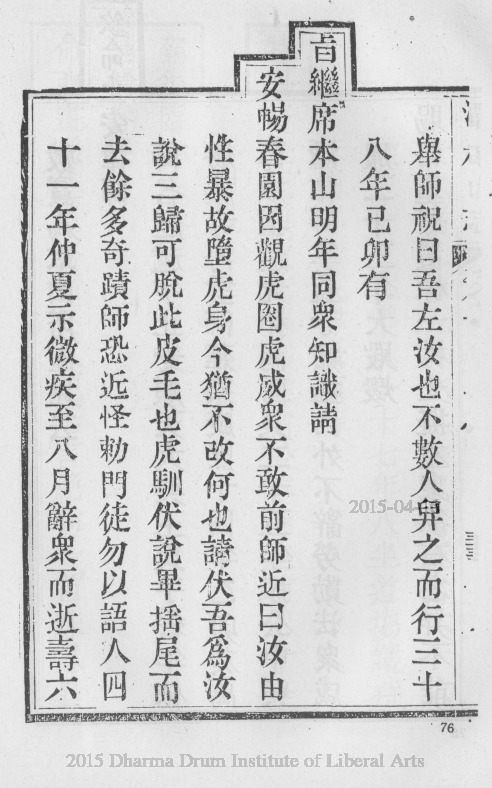 舉師祝曰吾左汝也不數人舁之而行三十
八年己卯有
旨繼席本山明年同衆知識請
安暢春園因觀虎圈虎威衆不敢前師近曰汝由
性暴故墮虎身今猶不改何也請伏吾爲汝
說三歸可脫此皮毛也虎馴伏說畢搖尾而
去餘多奇蹟師恐近怪勅門徒勿以語人四
十一年仲夏示微疾至八月辭衆而逝壽六
2015-04-
76
2015 Dharma Drum Institute of Liberal Arts